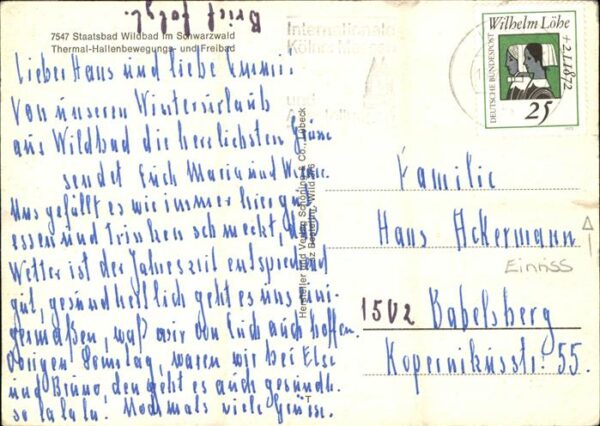 Brief folgt.
7547 Staatsbad Wildbad im Schwarzwald
Thermal-Hallenbewegungs- und Freibad
Lieber Hans und liebe Emmi!
Von unseren Winterurlaub
aus Wildbad die herzlichsten Grüße
sendet Euch Maria und
Uns gefällt es wie immer hier gut
essen und Trinken schmeckt,
Wetter ist der Jahreszeit entsprechend
gut, gesundheitlich geht es uns eini-
germaßen, was wir von Euch auch hoffen.
Vorigen Samstag, waren wir bei Else
und Bruno, den geht es auch gesundh.
so la la la. Nochmals viele Grüsse.
Hersteller und Verlag Schöning & Co., Lübeck
Wildbad
T
Internationale
Kölner Messen
und
Wilhelm Löhe
+ 2.1.1872
DEUTSCHE BUNDESPOST
25
Familie
Hans Ackermann
Einriss
1502 Babelsberg
Kopernikusstr. 55.